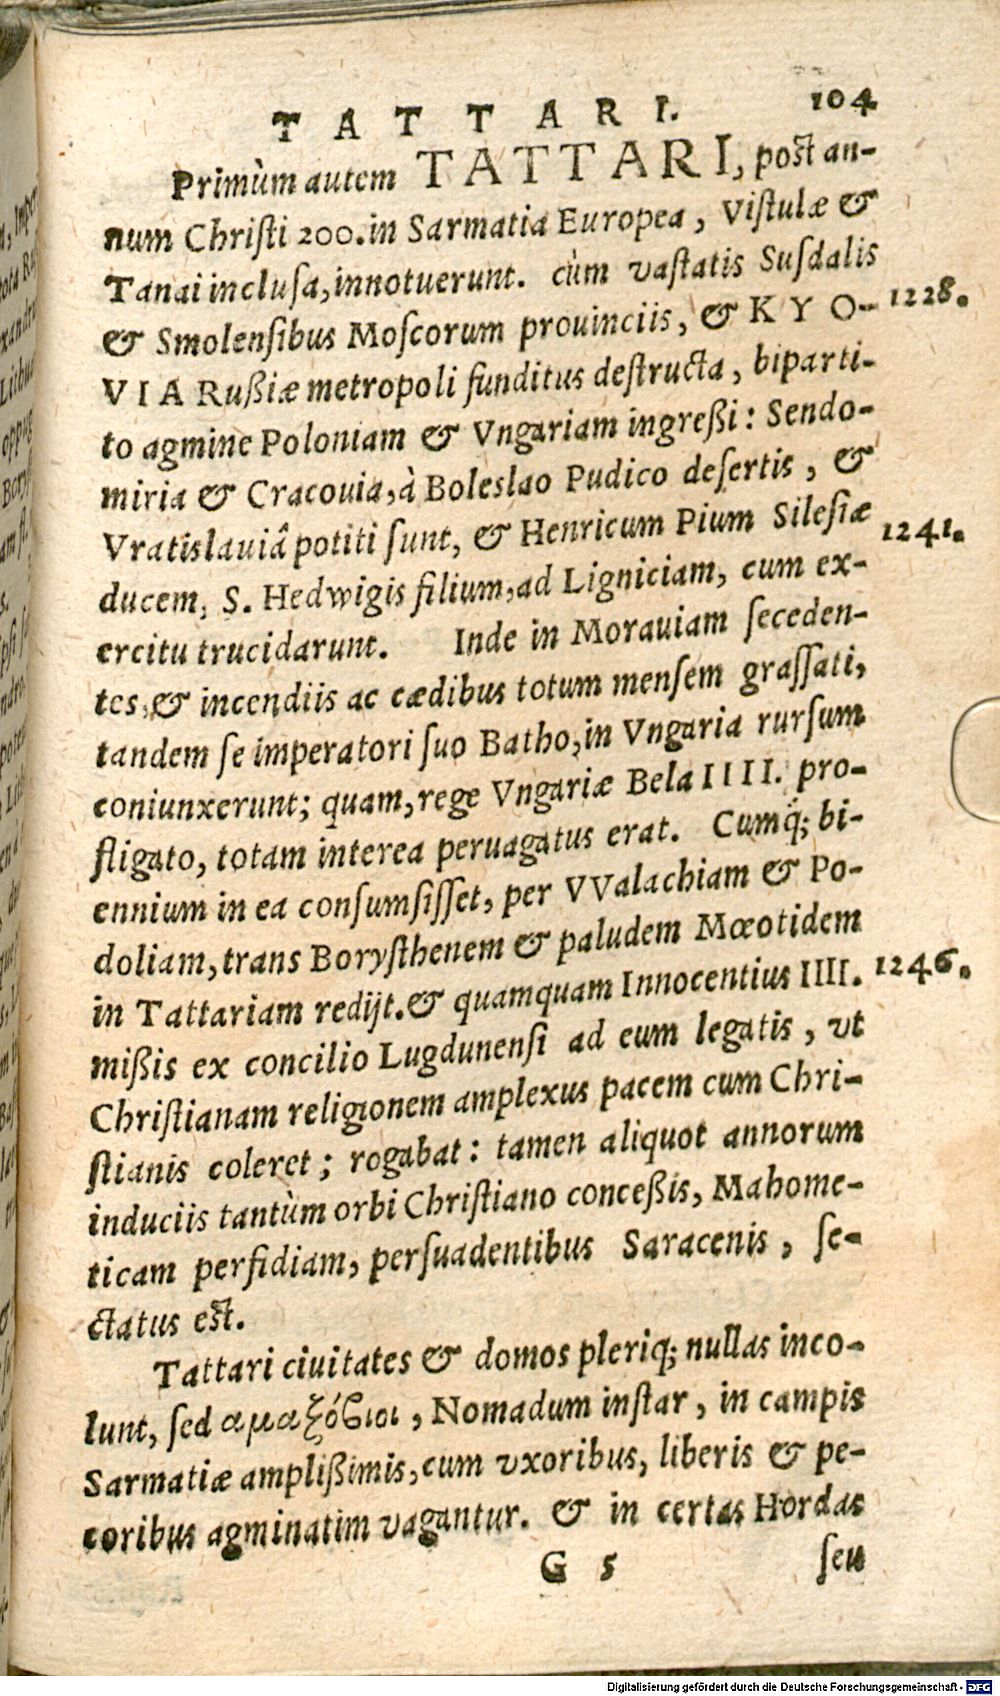 TATTARI. 104
Primùm autem TATTARI, post an-
num Christi 200. in Sarmatia Europea, Vistulæ &
Tanai inclusa, innotuerunt. cùm vastatis Susdalis
& Smolensibus Moscorum prouinciis, & KYO- 1228.
VIA Rußiæ metropoli funditus destructa, biparti-
to agmine Poloniam & Vngariam ingreßi: Sendo-
miria & Cracouia, à Boleslao Pudico desertis, &
Vratislauiâ potiti sunt, & Henricum Pium Silesiæ 1241.
ducem, S. Hedwigis filium, ad Ligniciam, cum ex-
ercitu trucidarunt. Inde in Morauiam seceden-
tes, & incendiis ac cædibus totum mensem grassati,
tandem se imperatori suo Batho, in Vngaria rursum
coniunxerunt; quam, rege Vngariæ Bela IIII. pro-
fligato, totam interea peruagatus erat. Cumq́; bi-
ennium in ea consumsisset, per VValachiam & Po-
doliam, trans Borysthenem & paludem Mœotidem
in Tattariam redijt. & quamquam Innocentius IIII. 1246.
mißis ex concilio Lugdunensi ad eum legatis, vt
Christianam religionem amplexus pacem cum Chri-
stianis coleret; rogabat: tamen aliquot annorum
induciis tantùm orbi Christiano conceßis, Mahome-
ticam perfidiam, persuadentibus Saracenis, se-
ctatus est.
Tattari ciuitates & domos pleriq; nullas inco-
lunt, sed αμαξόβιοι, Nomadum instar, in campis
Sarmatiæ amplißimis, cum vxoribus, liberis & pe-
coribus agminatim vagantur. & in certas Hordas
G 5 seu
Digitalisierung gefördert durch die Deutsche Forschungsgemeinschaft - DFG